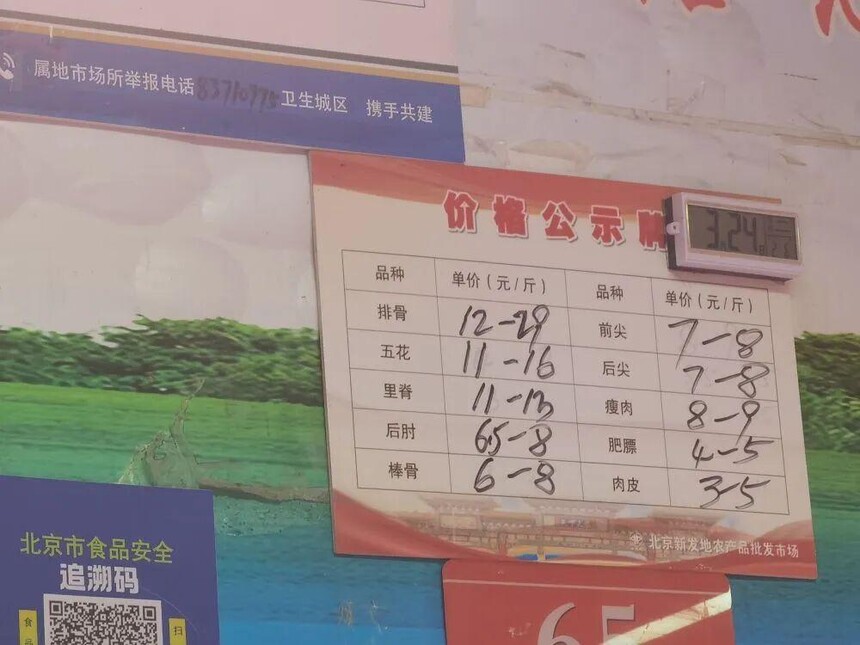 属地市场所举报电话83710775 卫生城区 携手共建
价格公示牌
3.24
品种 单价(元/斤) 品种 单价(元/斤)
排骨 12-29 前尖 7-8
五花 11-16 后尖 7-8
里脊 11-13 瘦肉 8-9
后肘 65-8 肥膘 4-5
棒骨 6-8 肉皮 3-5
北京新发地农产品批发市场
北京市食品安全
追溯码
食品
扫
65